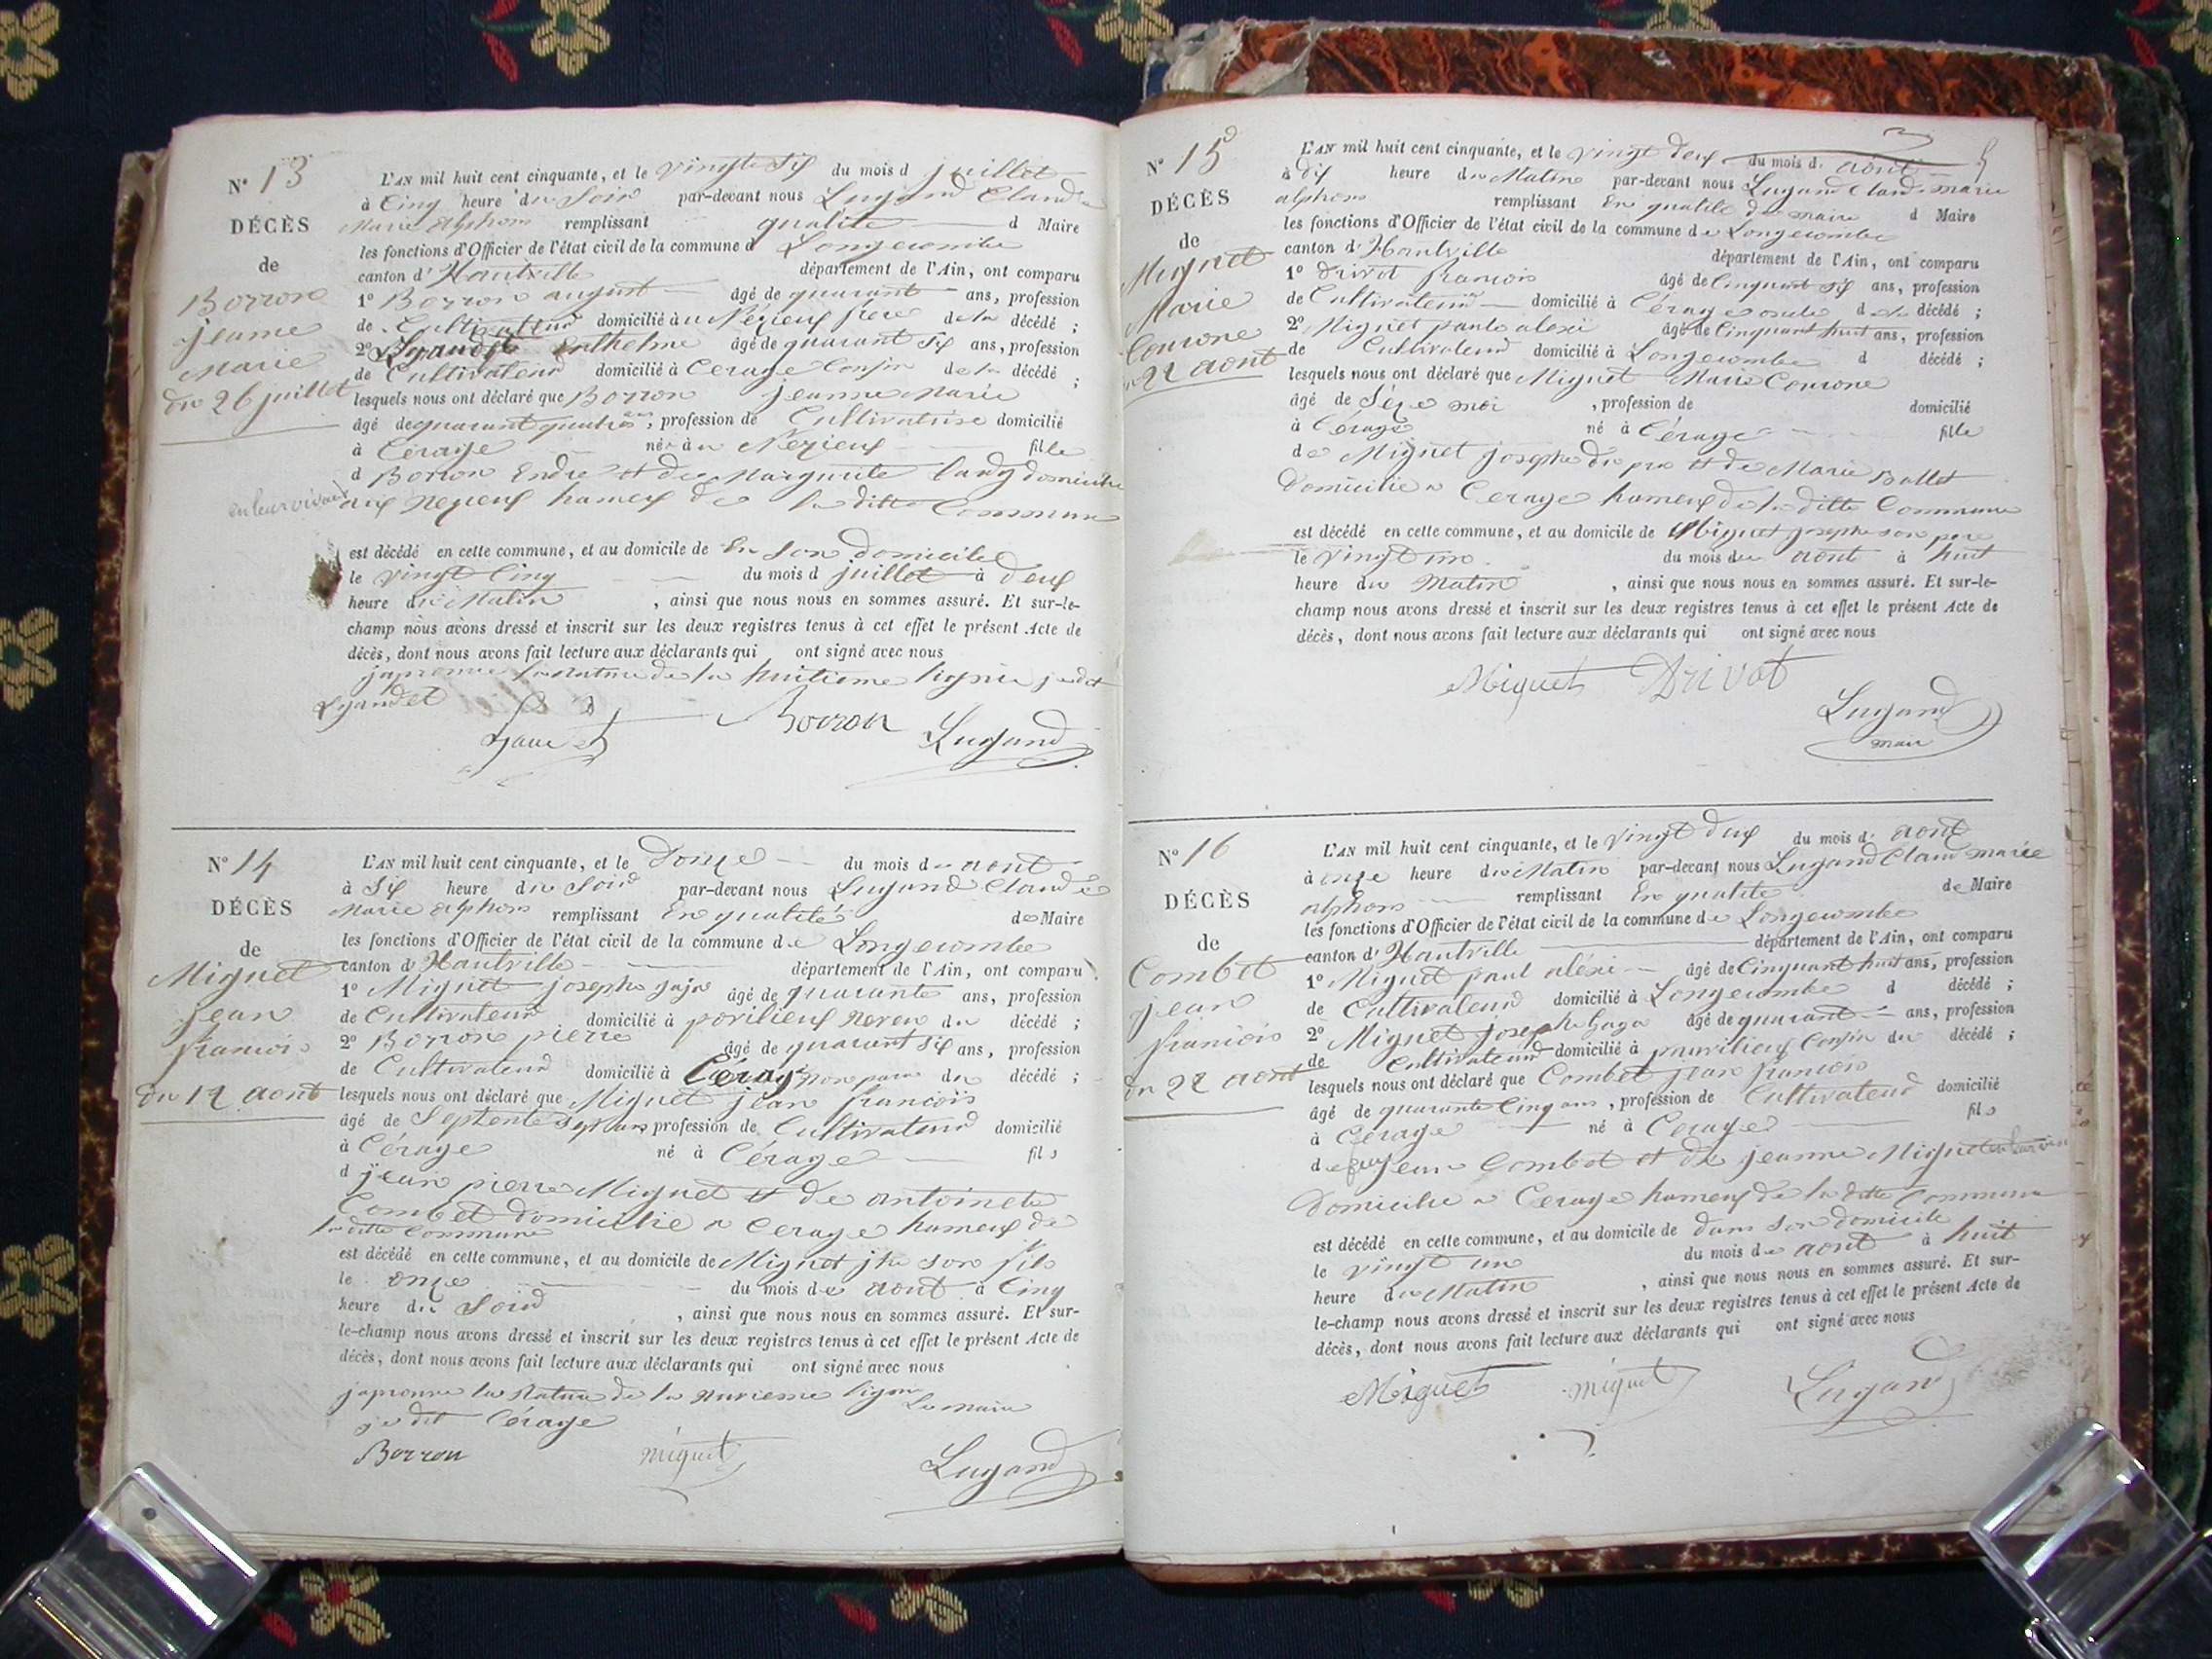 N° 13
DÉCÈS
de
Borron
jeanne
Marie
du 26 juillet
L'AN mil huit cent cinquante, et le vingt six du mois d juillet
à Cinq heure du Soir par-devant nous Lugand Claude
Marie alphons remplissant qualite d Maire
les fonctions d'Officier de l'état civil de la commune d Longecombe
canton d' Hautville département de l'Ain, ont comparu
1° Borron august âgé de quarant ans, profession
de Cultivateur domicilié à u Nezieux frere de la décédé ;
2° Lyaudet Enthelme âgé de quarant six ans, profession
de Cultivateur domicilié à Cerage Consin de la décédé ;
lesquels nous ont déclaré que Borron jeanne Marie
âgé de quarant quatre ans, profession de Cultivatrise domicilié
à Cérage né à u Nezieux fille
d Borron Endre et de Marguerite landy domicilie
en leur vivant aux Nezieux hameux de la ditte Commune
est décédé en cette commune, et au domicile de En Son domicile
le vingt Cinq du mois d juillet à deux
heure du Matin , ainsi que nous nous en sommes assuré. Et sur-le-
champ nous avons dressé et inscrit sur les deux registres tenus à cet effet le présent Acte de
décès, dont nous avons fait lecture aux déclarants qui ont signé avec nous
japrouve la rature de la huitieme lignie je dit
Lyaudet
Borron Lugand
N° 14
DÉCÈS
de
Miguet
Jean
francois
du 12 aout
L'AN mil huit cent cinquante, et le Douze du mois d aout
à Six heure du Soir par-devant nous Lugand Claude
Marie alphons remplissant En qualité de Maire
les fonctions d'Officier de l'état civil de la commune de Longecombe
canton d' Hautville département de l'Ain, ont comparu
1° Miguet josephe gaja âgé de quarante ans, profession
de Cultivateur domicilié à porilieux neveu du décédé ;
2° Borron pierre âgé de quarant six ans, profession
de Cultivateur domicilié à Cérage du décédé ;
lesquels nous ont déclaré que Miguet jean francois
âgé de Septente Sept ans profession de Cultivateur domicilié
à Cérage né à Cérage fils
d jean pierre Miguet et de antoinete
Combet domicilie a Cerage hameux de
la ditte Commune
est décédé en cette commune, et au domicile de Miguet jhe son fils
le onze du mois de aout à Cinq
heure du Soir , ainsi que nous nous en sommes assuré. Et sur-
le-champ nous avons dressé et inscrit sur les deux registres tenus à cet effet le présent Acte de
décès, dont nous avons fait lecture aux déclarants qui ont signé avec nous
japrouve la rature de la nuvieme ligne
je dit Cérage Le maire
Borron miguet Lugand
N° 15
DÉCÈS
de
Miguet
Marie
Courone
22 aout
L'AN mil huit cent cinquante, et le vingt deux du mois d. aout
à dix heure du Matin par-devant nous Lugand Claude marie
alphons remplissant En qualité de maire d Maire
les fonctions d'Officier de l'état civil de la commune de Longecombe
canton d' Hautville département de l'Ain, ont comparu
1° Drivot francois âgé de Cinquant six ans, profession
de Cultivateur domicilié à Cérage d la décédé ;
2° Miguet paule alexi âgé de Cinquant huit ans, profession
de Cultivateur domicilié à Longecombe d décédé ;
lesquels nous ont déclaré que Miguet Marie Courone
âgé de Seze moi , profession de domicilié
à Cérage né à Cérage fille
de Miguet josephe et de Marie Ballet
Domicilie a Cerage hameux de la ditte Commune
est décédé en cette commune, et au domicile de Miguet josephe son pere
le vingt un du mois du aout à huit
heure du Matin , ainsi que nous nous en sommes assuré. Et sur-le-
champ nous avons dressé et inscrit sur les deux registres tenus à cet effet le présent Acte de
décès, dont nous avons fait lecture aux déclarants qui ont signé avec nous
Miguet Drivot
Lugand
mair
N° 16
DÉCÈS
de
Combet
jean
francois
du 22 aout
L'AN mil huit cent cinquante, et le vingt deux du mois d' aout
à onze heure du Matin par-devant nous Lugand Claud marie
alphons remplissant En qualite de Maire
les fonctions d'Officier de l'état civil de la commune de Longecombe
canton d' Hautville département de l'Ain, ont comparu
1° Miguet paul aléxi âgé de Cinquant huit ans, profession
de Cultivateur domicilié à Longecombe d décédé ;
2° Miguet Josephe Gaga âgé de quarant ans, profession
de Cultivateur domicilié à pourilieux Consin du décédé ;
lesquels nous ont déclaré que Combet jean francois
âgé de quarante Cinq ans, profession de Cultivateur domicilié
à Cerage né à Cerage fils
de jean Combet et de jeanne Miguet
Domicilie a Cerage hameux de la ditte Commune
est décédé en cette commune, et au domicile de dans son domicile
le vingt un du mois de aout à huit
heure du Matin , ainsi que nous nous en sommes assuré. Et sur-
le-champ nous avons dressé et inscrit sur les deux registres tenus à cet effet le présent Acte de
décès, dont nous avons fait lecture aux déclarants qui ont signé avec nous
Miguet miguet Lugand